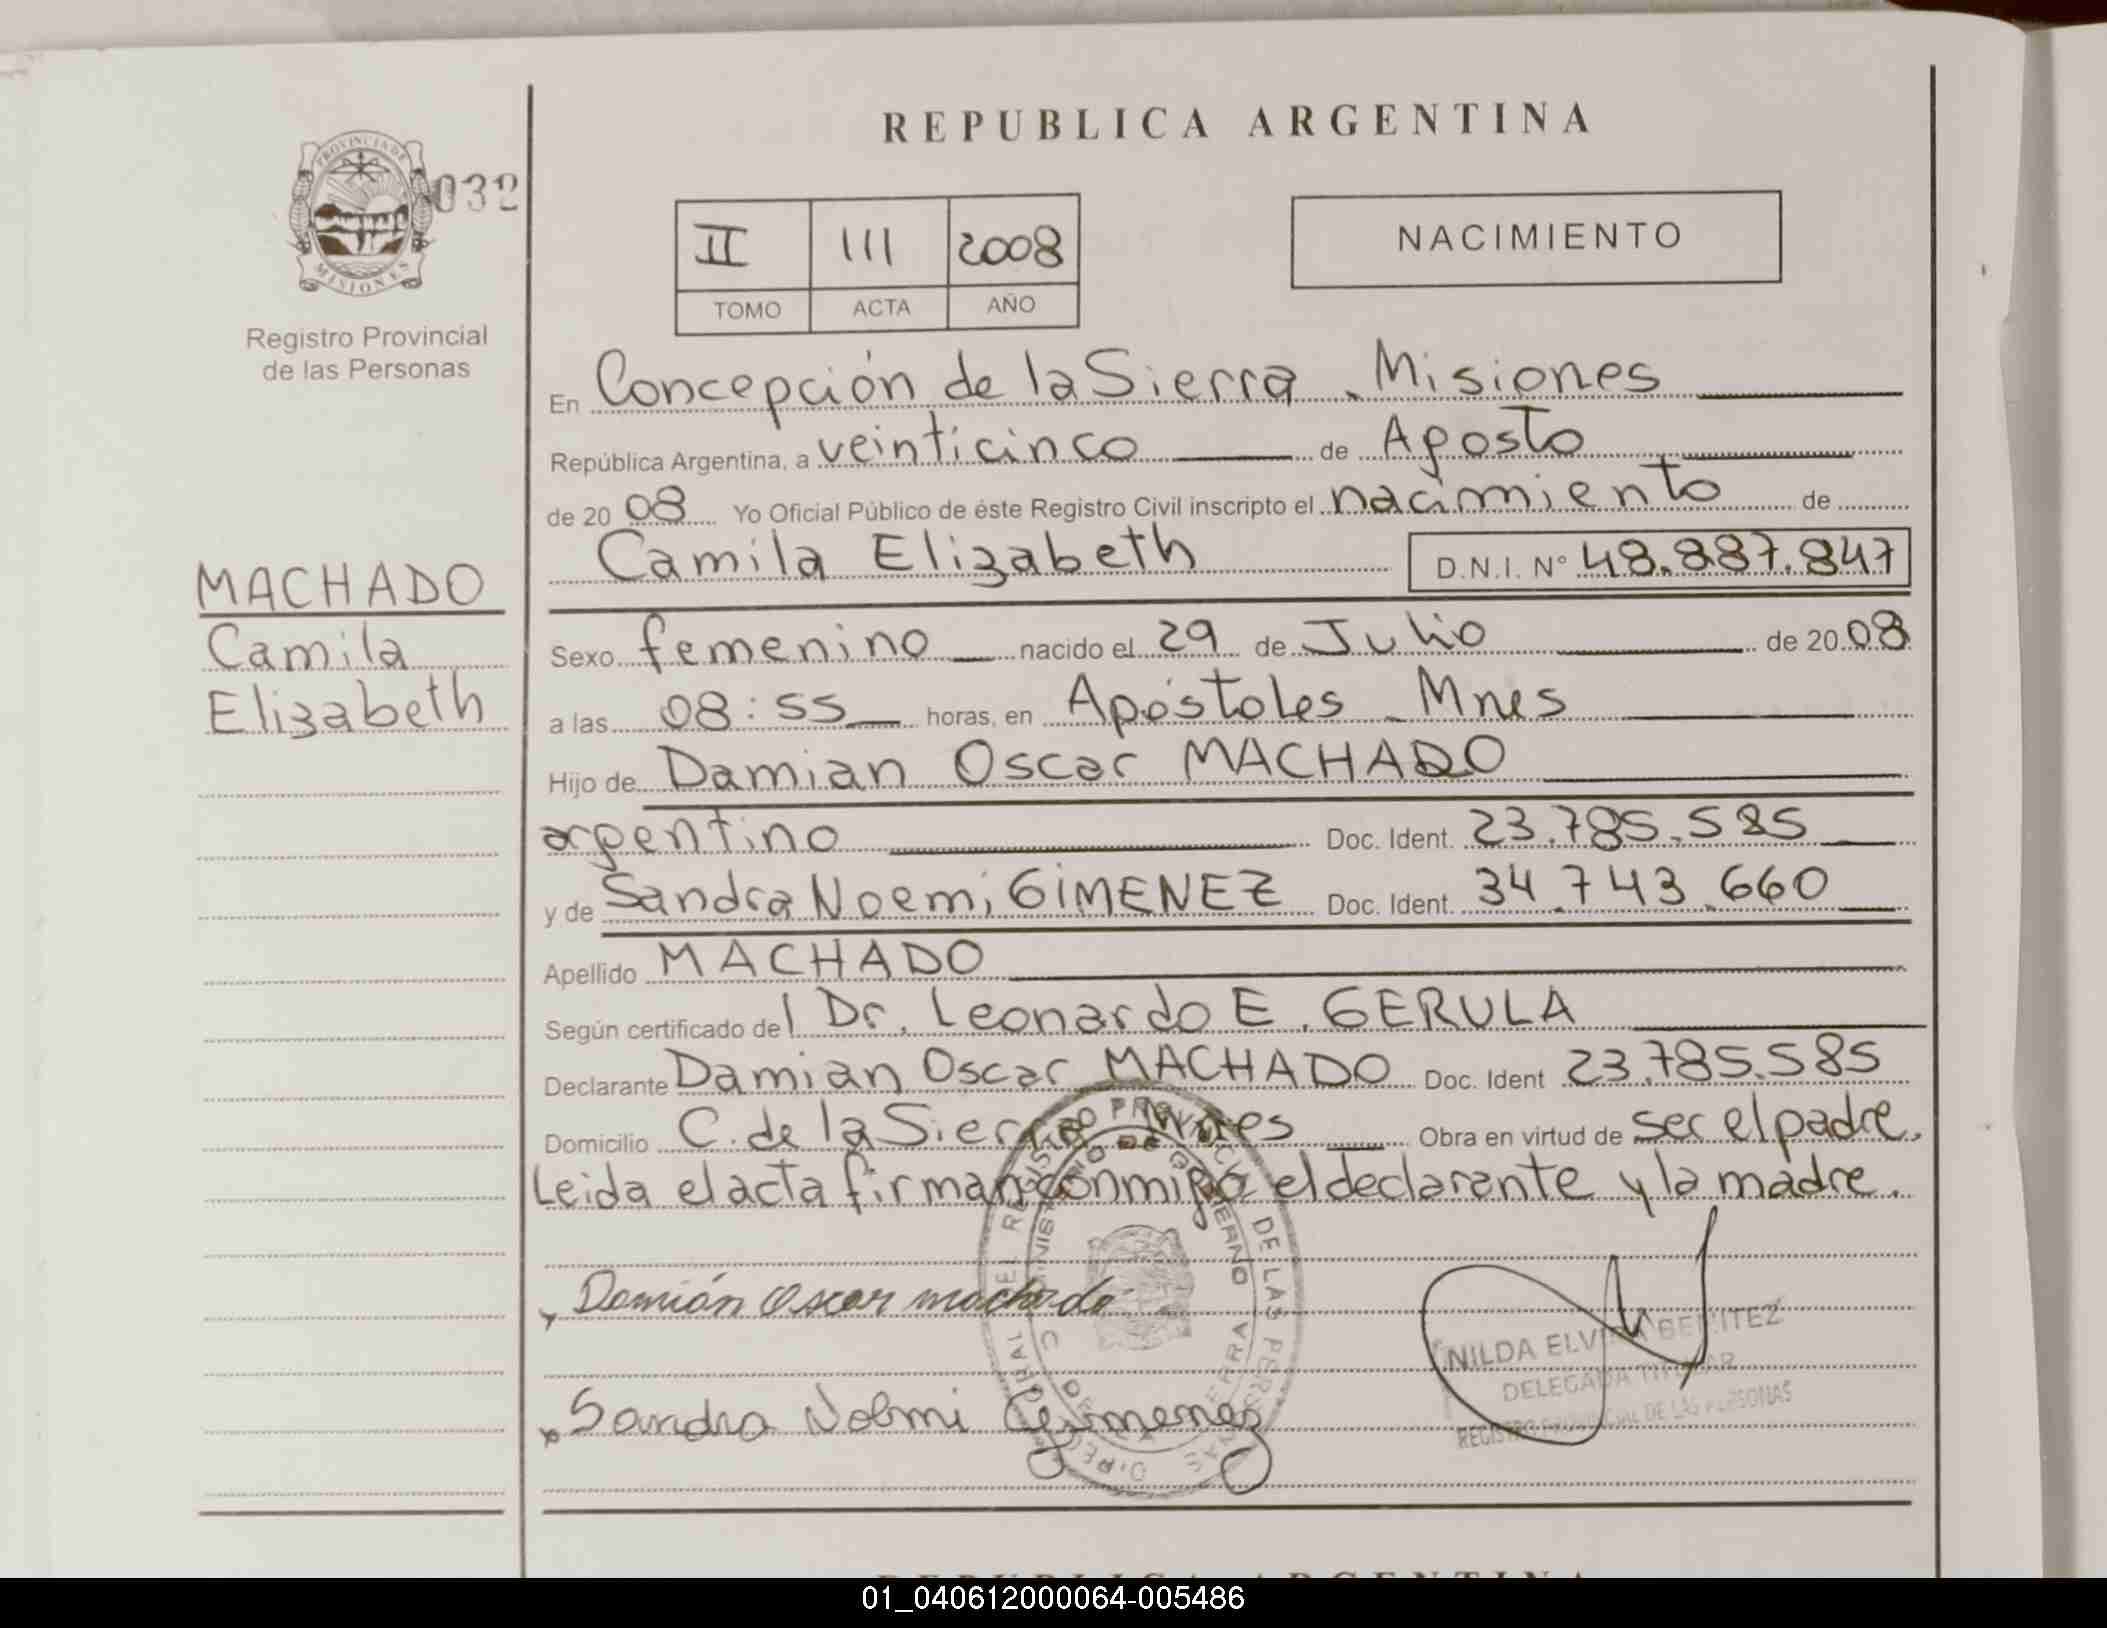 REPUBLICA ARGENTINA
PROVINCIA DE
MISIONES
032
Registro Provincial
de las Personas
II 111 2008
TOMO ACTA AÑO
NACIMIENTO
En Concepción de la Sierra. Misiones
República Argentina, a veinticinco de Agosto
de 2008 Yo Oficial Público de éste Registro Civil inscripto el nacimiento de
Camila Elizabeth D.N.I. Nº 48.887.847
MACHADO
Camila
Elizabeth
Sexo femenino nacido el 29 de Julio de 2008
a las 08:55 horas, en Apóstoles Mnes
Hijo de Damian Oscar MACHADO
argentino Doc. Ident. 23.785.585
y de Sandra Noemi GIMENEZ Doc. Ident. 34.743.660
Apellido MACHADO
Según certificado del Dr. Leonardo E. GERULA
Declarante Damian Oscar MACHADO Doc. Ident 23.785.585
Domicilio C. de la Sierra Mnes Obra en virtud de ser el padre.
Leida el acta firman conmigo el declarante y la madre.
Damián Oscar machado
Sandra Noemi Gimenez
NILDA ELVIRA BENITEZ
DELEGADA TITULAR
REGISTRO PROVINCIAL DE LAS PERSONAS
REPUBLICA ARGENTINA
01_040612000064-005486